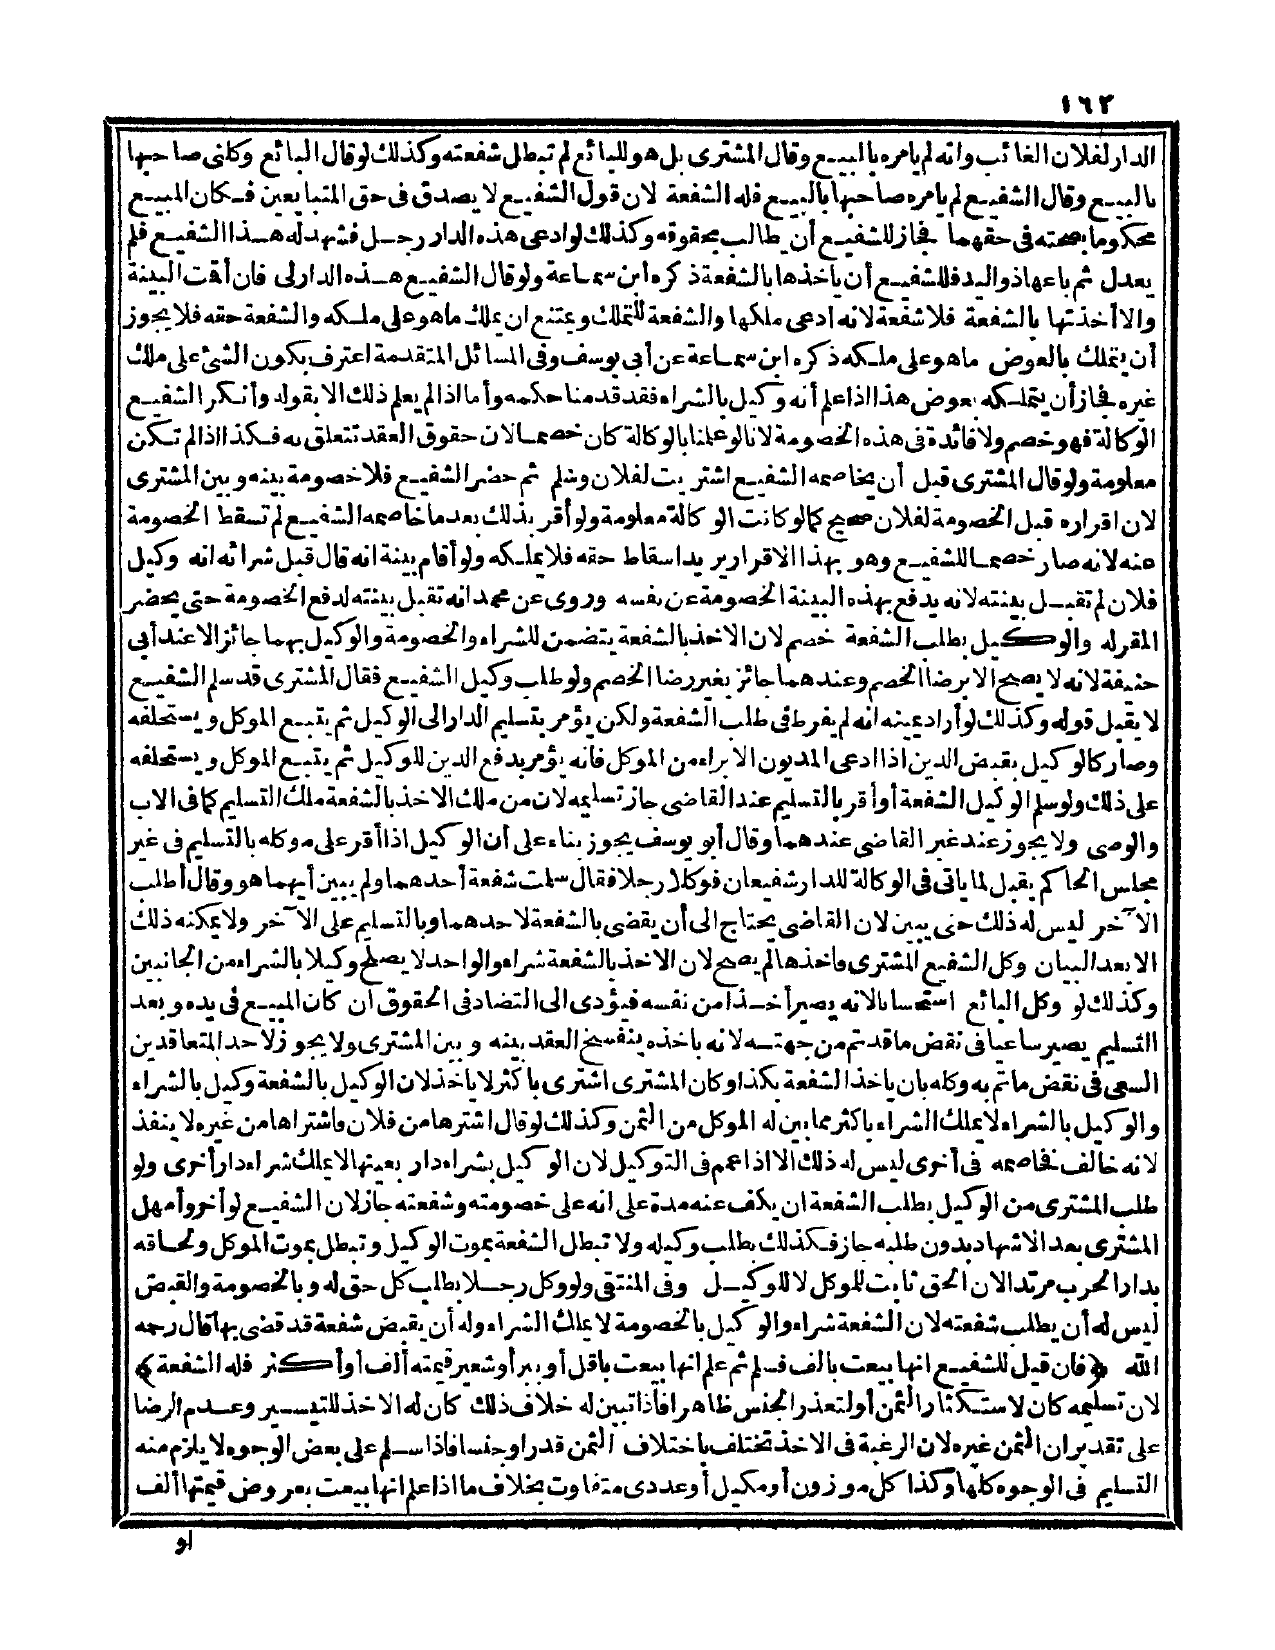 ١٦٢
الدار لفلان الغائب وانه لم يامره بالبيع وقال المشترى بل هو للبائع لم تبطل شفعته وكذلك لو قال البائع وكلنى صاحبها
بالبيع وقال الشفيع لم يامره صاحبها بالبيع فله الشفعة لان قول الشفيع لا يصدق فى حق المتبايعين فكان المبيع
محكوما بصحته فى حقهما فجاز للشفيع أن يطالب بحقوقه وكذلك لو ادعى هذه الدار رجل فشهد له هذا الشفيع فلم
يعدل ثم باعها ذو اليد فللشفيع أن ياخذها بالشفعة ذكره ابن سماعة ولو قال الشفيع هذه الدار لى فان أقمت البينة
والا أخذتها بالشفعة فلا شفعة لانه ادعى ملكها والشفعة للتملك ويمتنع ان يملك ما هو على ملكه والشفعة حقه فلا يجوز
أن يتملك بالعوض ما هو على ملكه ذكره ابن سماعة عن أبى يوسف وفى المسائل المتقدمة اعترف بكون الشئ على ملك
غيره فجاز أن يتملكه بعوض هذا اذا علم أنه وكيل بالشراء فقد قدمنا حكمه وأما اذا لم يعلم ذلك الا بقوله وأنكر الشفيع
الوكالة فهو خصم ولا فائدة فى هذه الخصومة لانا لو علمنا بالوكالة كان خصما لان حقوق العقد تتعلق به فكذا اذا لم تكن
معلومة ولو قال المشترى قبل أن يخاصمه الشفيع اشتريت لفلان وسلم ثم حضر الشفيع فلا خصومة بينه وبين المشترى
لان اقراره قبل الخصومة لفلان صحيح كما لو كانت الوكالة معلومة ولو أقر بذلك بعدما خاصمه الشفيع لم تسقط الخصومة
عنه لانه صار خصما للشفيع وهو بهذا الاقرار يريد اسقاط حقه فلا يملكه ولو أقام بينة انه قال قبل شرائه انه وكيل
فلان لم تقبل بينته لانه يدفع بهذه البينة الخصومة عن نفسه وروى عن محمد انه تقبل بينته لدفع الخصومة حتى يحضر
المقر له والوكيل بطلب الشفعة خصم لان الاخذ بالشفعة يتضمن للشراء والخصومة والوكيل بهما جائز الا عند أبى
حنيفة لانه لا يصح الا برضا الخصم وعندهما جائز بغير رضا الخصم ولو طلب وكيل الشفيع فقال المشترى قد سلم الشفيع
لا يقبل قوله وكذلك لو أراد يمينه انه لم يفرط فى طلب الشفعة ولكن يؤمر بتسليم الدار الى الوكيل ثم يتبع الموكل ويستحلفه
وصار كالوكيل بقبض الدين اذا ادعى المديون الابراء من الموكل فانه يؤمر بدفع الدين للوكيل ثم يتبع الموكل ويستحلفه
على ذلك ولو سلم الوكيل الشفعة أو أقر بالتسليم عند القاضى جاز تسليمه لان من ملك الاخذ بالشفعة ملك التسليم كما فى الاب
والوصى ولا يجوز عند غير القاضى عندهما وقال أبو يوسف يجوز بناء على أن الوكيل اذا أقر على موكله بالتسليم فى غير
مجلس الحاكم يقبل لما ياتى فى الوكالة للدار شفيعان فوكلا رجلا فقال سلمت شفعة أحدهما ولم يبين أيهما هو وقال أطلب
الآخر ليس له ذلك حتى يبين لان القاضى يحتاج الى أن يقضى بالشفعة لاحدهما وبالتسليم على الآخر ولا يمكنه ذلك
الا بعد البيان وكل الشفيع المشترى فاخذها لم يصح لان الاخذ بالشفعة شراء والواحد لا يصلح وكيلا بالشراء من الجانبين
وكذلك لو وكل البائع استحسانا لانه يصير أخذا من نفسه فيؤدى الى التضاد فى الحقوق ان كان المبيع فى يده وبعد
التسليم يصير ساعيا فى نقض ما قد تم من جهته لانه باخذه ينفسخ العقد بينه وبين المشترى ولا يجوز لاحد المتعاقدين
السعى فى نقض ما تم به وكله بان ياخذ الشفعة بكذا وكان المشترى اشترى باكثر لا ياخذ لان الوكيل بالشفعة وكيل بالشراء
والوكيل بالشراء لا يملك الشراء باكثر مما بين له الموكل من الثمن وكذلك لو قال اشترها من فلان فاشتراها من غيره لا ينفذ
لانه خالف فخاصمه فى أخرى ليس له ذلك الا اذا عمم فى التوكيل لان الوكيل بشراء دار بعينها لا يملك شراء دار أخرى ولو
طلب المشترى من الوكيل بطلب الشفعة ان يكف عنه مدة على انه على خصومته وشفعته جاز لان الشفيع لو أخر وأمهل
المشترى بعد الاشهاد بدون طلبه جاز فكذلك بطلب وكيله ولا تبطل الشفعة بموت الوكيل وتبطل بموت الموكل ولحاقه
بدار الحرب مرتدا لان الحق ثابت للموكل لا للوكيل وفى المنتقى ولو وكل رجلا بطلب كل حق له وبالخصومة والقبض
ليس له أن يطلب شفعته لان الشفعة شراء والوكيل بالخصومة لا يملك الشراء وله أن يقبض شفعة قد قضى بها قال رحمه
الله ﴿فان قيل للشفيع انها بيعت بالف فسلم ثم علم انها بيعت باقل أو ببر أو شعير قيمته ألف أو أكثر فله الشفعة﴾
لان تسليمه كان لاستكثار الثمن أو لتعذر الجنس ظاهرا فاذا تبين له خلاف ذلك كان له الاخذ للتيسير وعدم الرضا
على تقدير ان الثمن غيره لان الرغبة فى الاخذ تختلف باختلاف الثمن قدرا وجنسا فاذا سلم على بعض الوجوه لا يلزم منه
التسليم فى الوجوه كلها وكذا كل موزون أو مكيل أو عددى متفاوت بخلاف ما اذا علم انها بيعت بعروض قيمتها ألف
أو